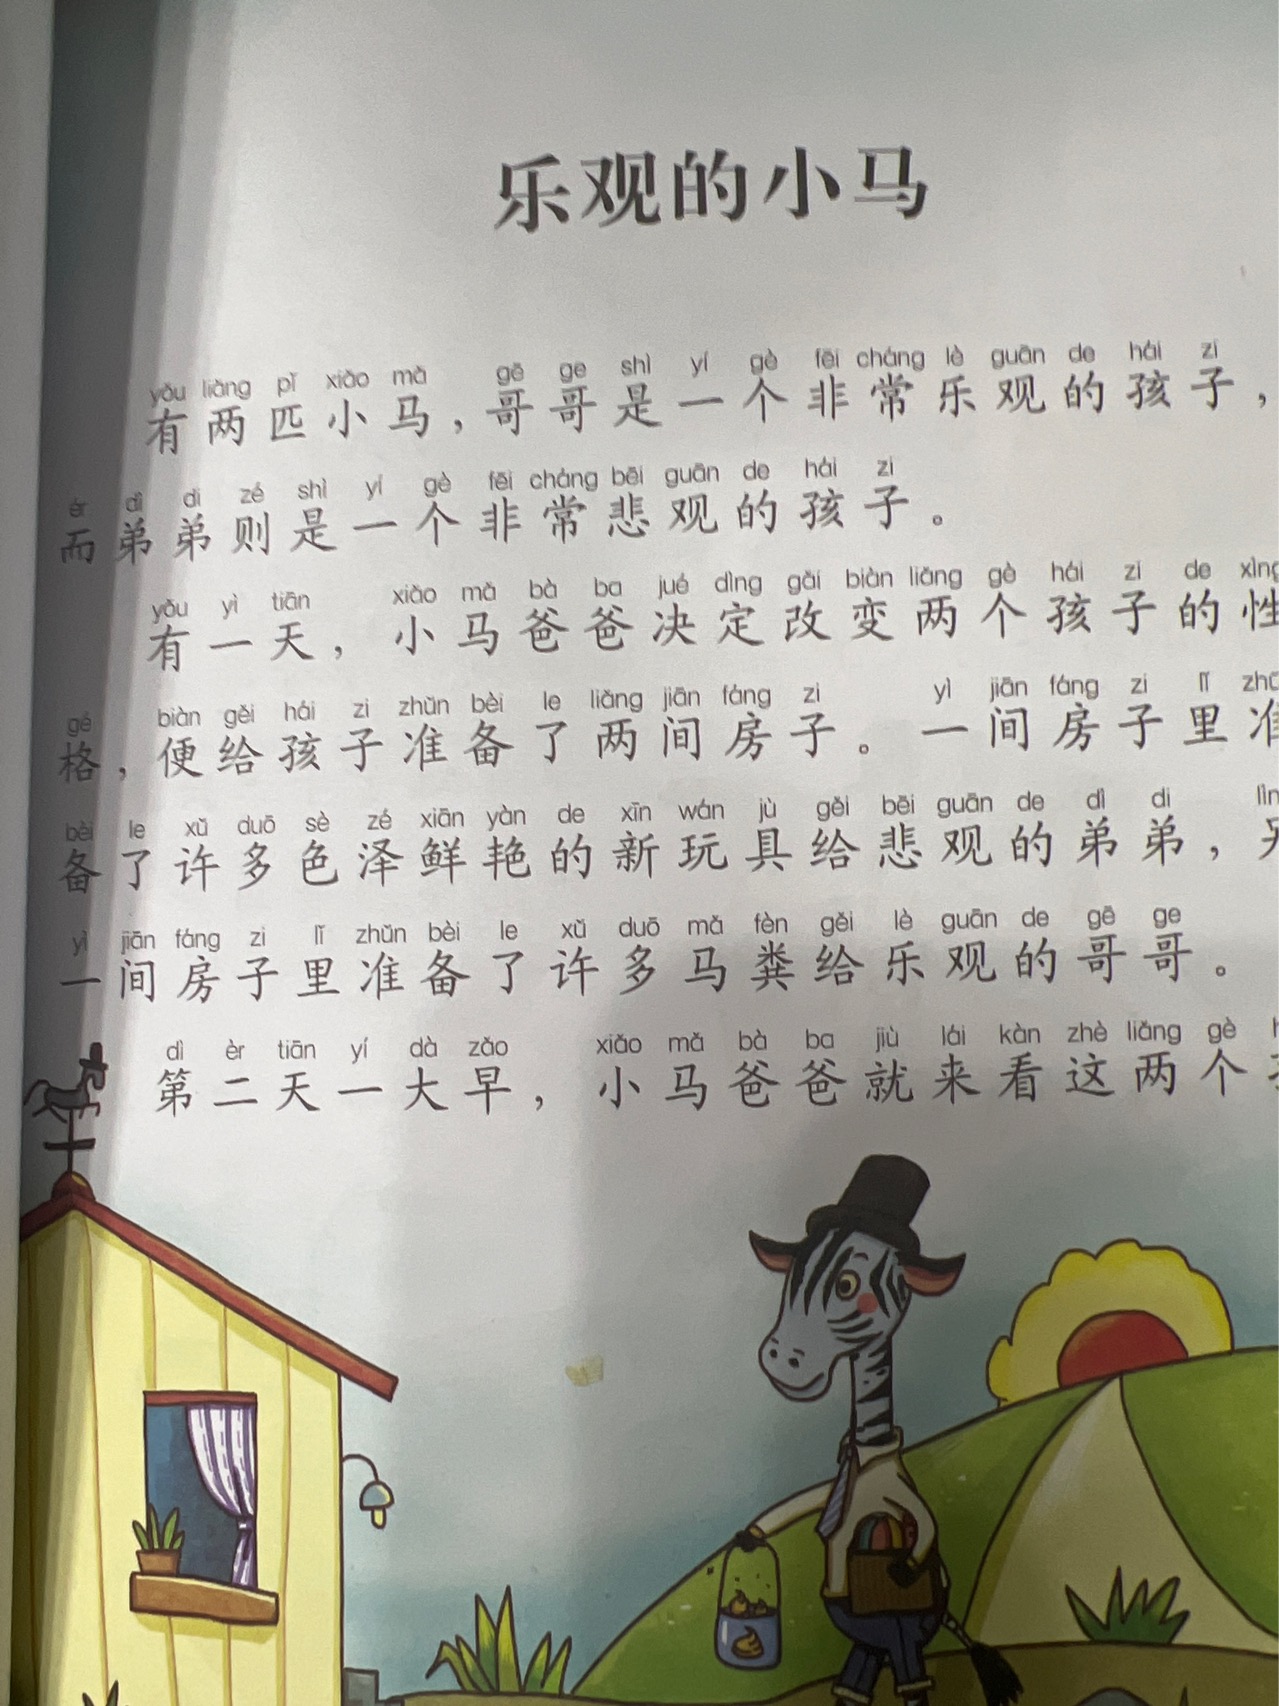 乐观的小马
yǒu liǎng pǐ xiǎo mǎ gē ge shì yí gè fēi cháng lè guān de hái zi
有两匹小马，哥哥是一个非常乐观的孩子，
ér dì di zé shì yí gè fēi cháng bēi guān de hái zi
而弟弟则是一个非常悲观的孩子。
yǒu yì tiān xiǎo mǎ bà ba jué dìng gǎi biàn liǎng gè hái zi de xìng
有一天，小马爸爸决定改变两个孩子的性
gé biàn gěi hái zi zhǔn bèi le liǎng jiān fáng zi yì jiān fáng zi lǐ
格，便给孩子准备了两间房子。一间房子里准
bèi le xǔ duō sè zé xiān yàn de xīn wán jù gěi bēi guān de dì di
备了许多色泽鲜艳的新玩具给悲观的弟弟，
yì jiān fáng zi lǐ zhǔn bèi le xǔ duō mǎ fèn gěi lè guān de gē ge
一间房子里准备了许多马粪给乐观的哥哥。
dì èr tiān yí dà zǎo xiǎo mǎ bà ba jiù lái kàn zhè liǎng gè
第二天一大早，小马爸爸就来看这两个